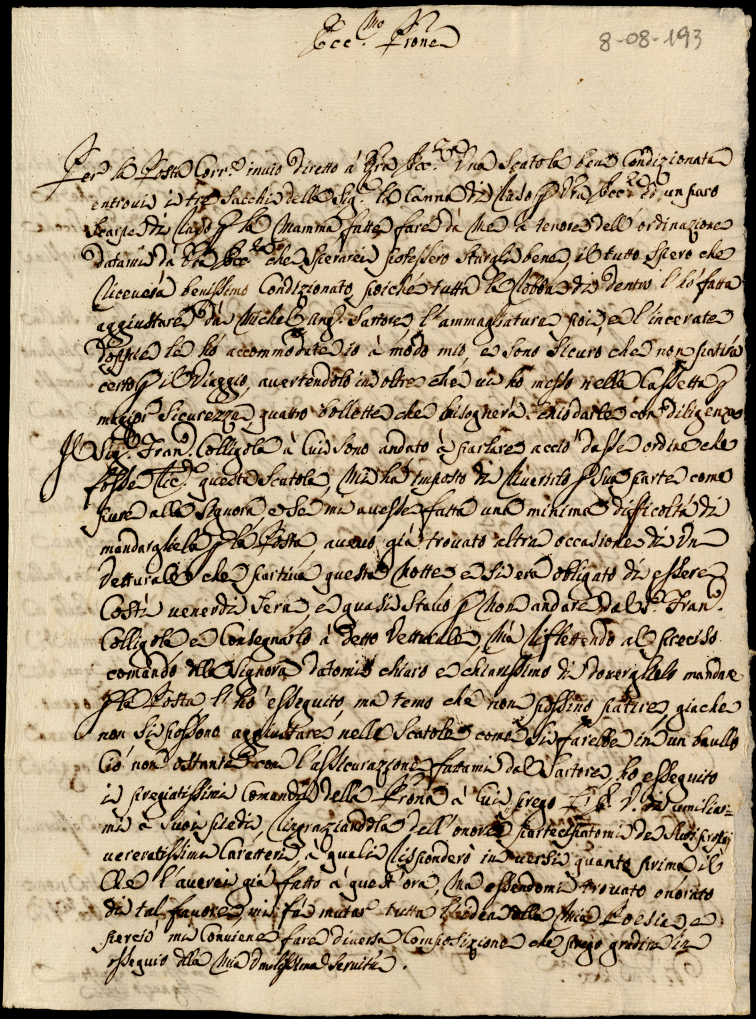 Ecc.mo Prone
8-08-193
Per la Posta Corr.e invio diretto à Vra Ecc.za Una Scatola bene Condizionata
entrovi i tre Sacchi della Sig.ra la Canna di Caso p Vra Ecc.za et un paro
Scarpe di Caso p la Mamma fatte fare da Me a tenore dell'ordinazione
datami da Vra Ecc.za che sperarei potessero Stargli bene, il tutto Spero che
riceverà benissimo Condizionato, poiché tutta la Robba di dentro l'hò fatta
aggiustare da Michel'Ang.o Sartore, l'ammagliatura poi, e l'incerate
doppie le hò accommodate io à modo mio, e sono Sicuro che non patirà
certo p il Viaggio, avertendolo inoltre che vi ho messo nella Cassetta p
magior Sicurezza quattro bollette che bisognerà chiodarle con diligenza
Il Sig.r Fran.o Colligola à Cui sono andato à parlare acciò dasse ordine che
fosse ric.a questa Scatola, Mi ha imposto di riverirlo p Sua parte come
pure alla Signora, e Se mi avesse fatta una minima difficoltà di
mandargliela p la Posta, avevo già trovato altra occasione di Un
Vetturale che partiva questa Notte e si era obligato di essere
Costì venerdì Sera, e quasi Stavo p Non andare dal S.r Fran.o
Colligola e Consegnarlo à detto Vetturale, Mà riflettendo al preciso
comando della Signora datomi chiaro e chiarissimo di doverglielo mandare
p la Posta, l'hò esseguito, ma temo che non possino patire, giache
non si possono aggiustare nelle Scatole come si farebbe in un baullo
Ciò non ostante con l'assicurazione fattami dal Sartore, ho esseguito
i pregiatissimi Comandi della Prona a Cui prego V. E. di umiliar=
mi a Suoi piedi, ringraziandola dell'onore partecipatomi de Suoi proprj
veneratissimi Caratteri, à quali risponderò in versi quanto prima il
che l'averei già fatto a quest'ora, Ma essendomi trovato onorato
di tal favore mi fà mutar tutta l'Idea della Mia Poesia, e
perciò mi Conviene fare diversa Composizione che prego gradire in
osseguio della Mia Umilissima Servitù.